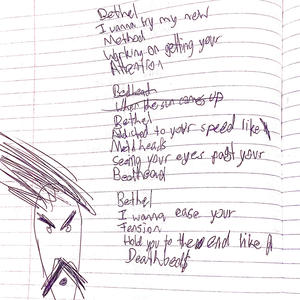 Bethel
I wanna try my new
Method
Working on getting your
Attention
Bedhead
When the sun comes up
Bethel
Addicted to your speed like
Meth heads
seeing your eyes past your
Bethel
I wanna ease your
Tension
Hold you to the end like A
Death